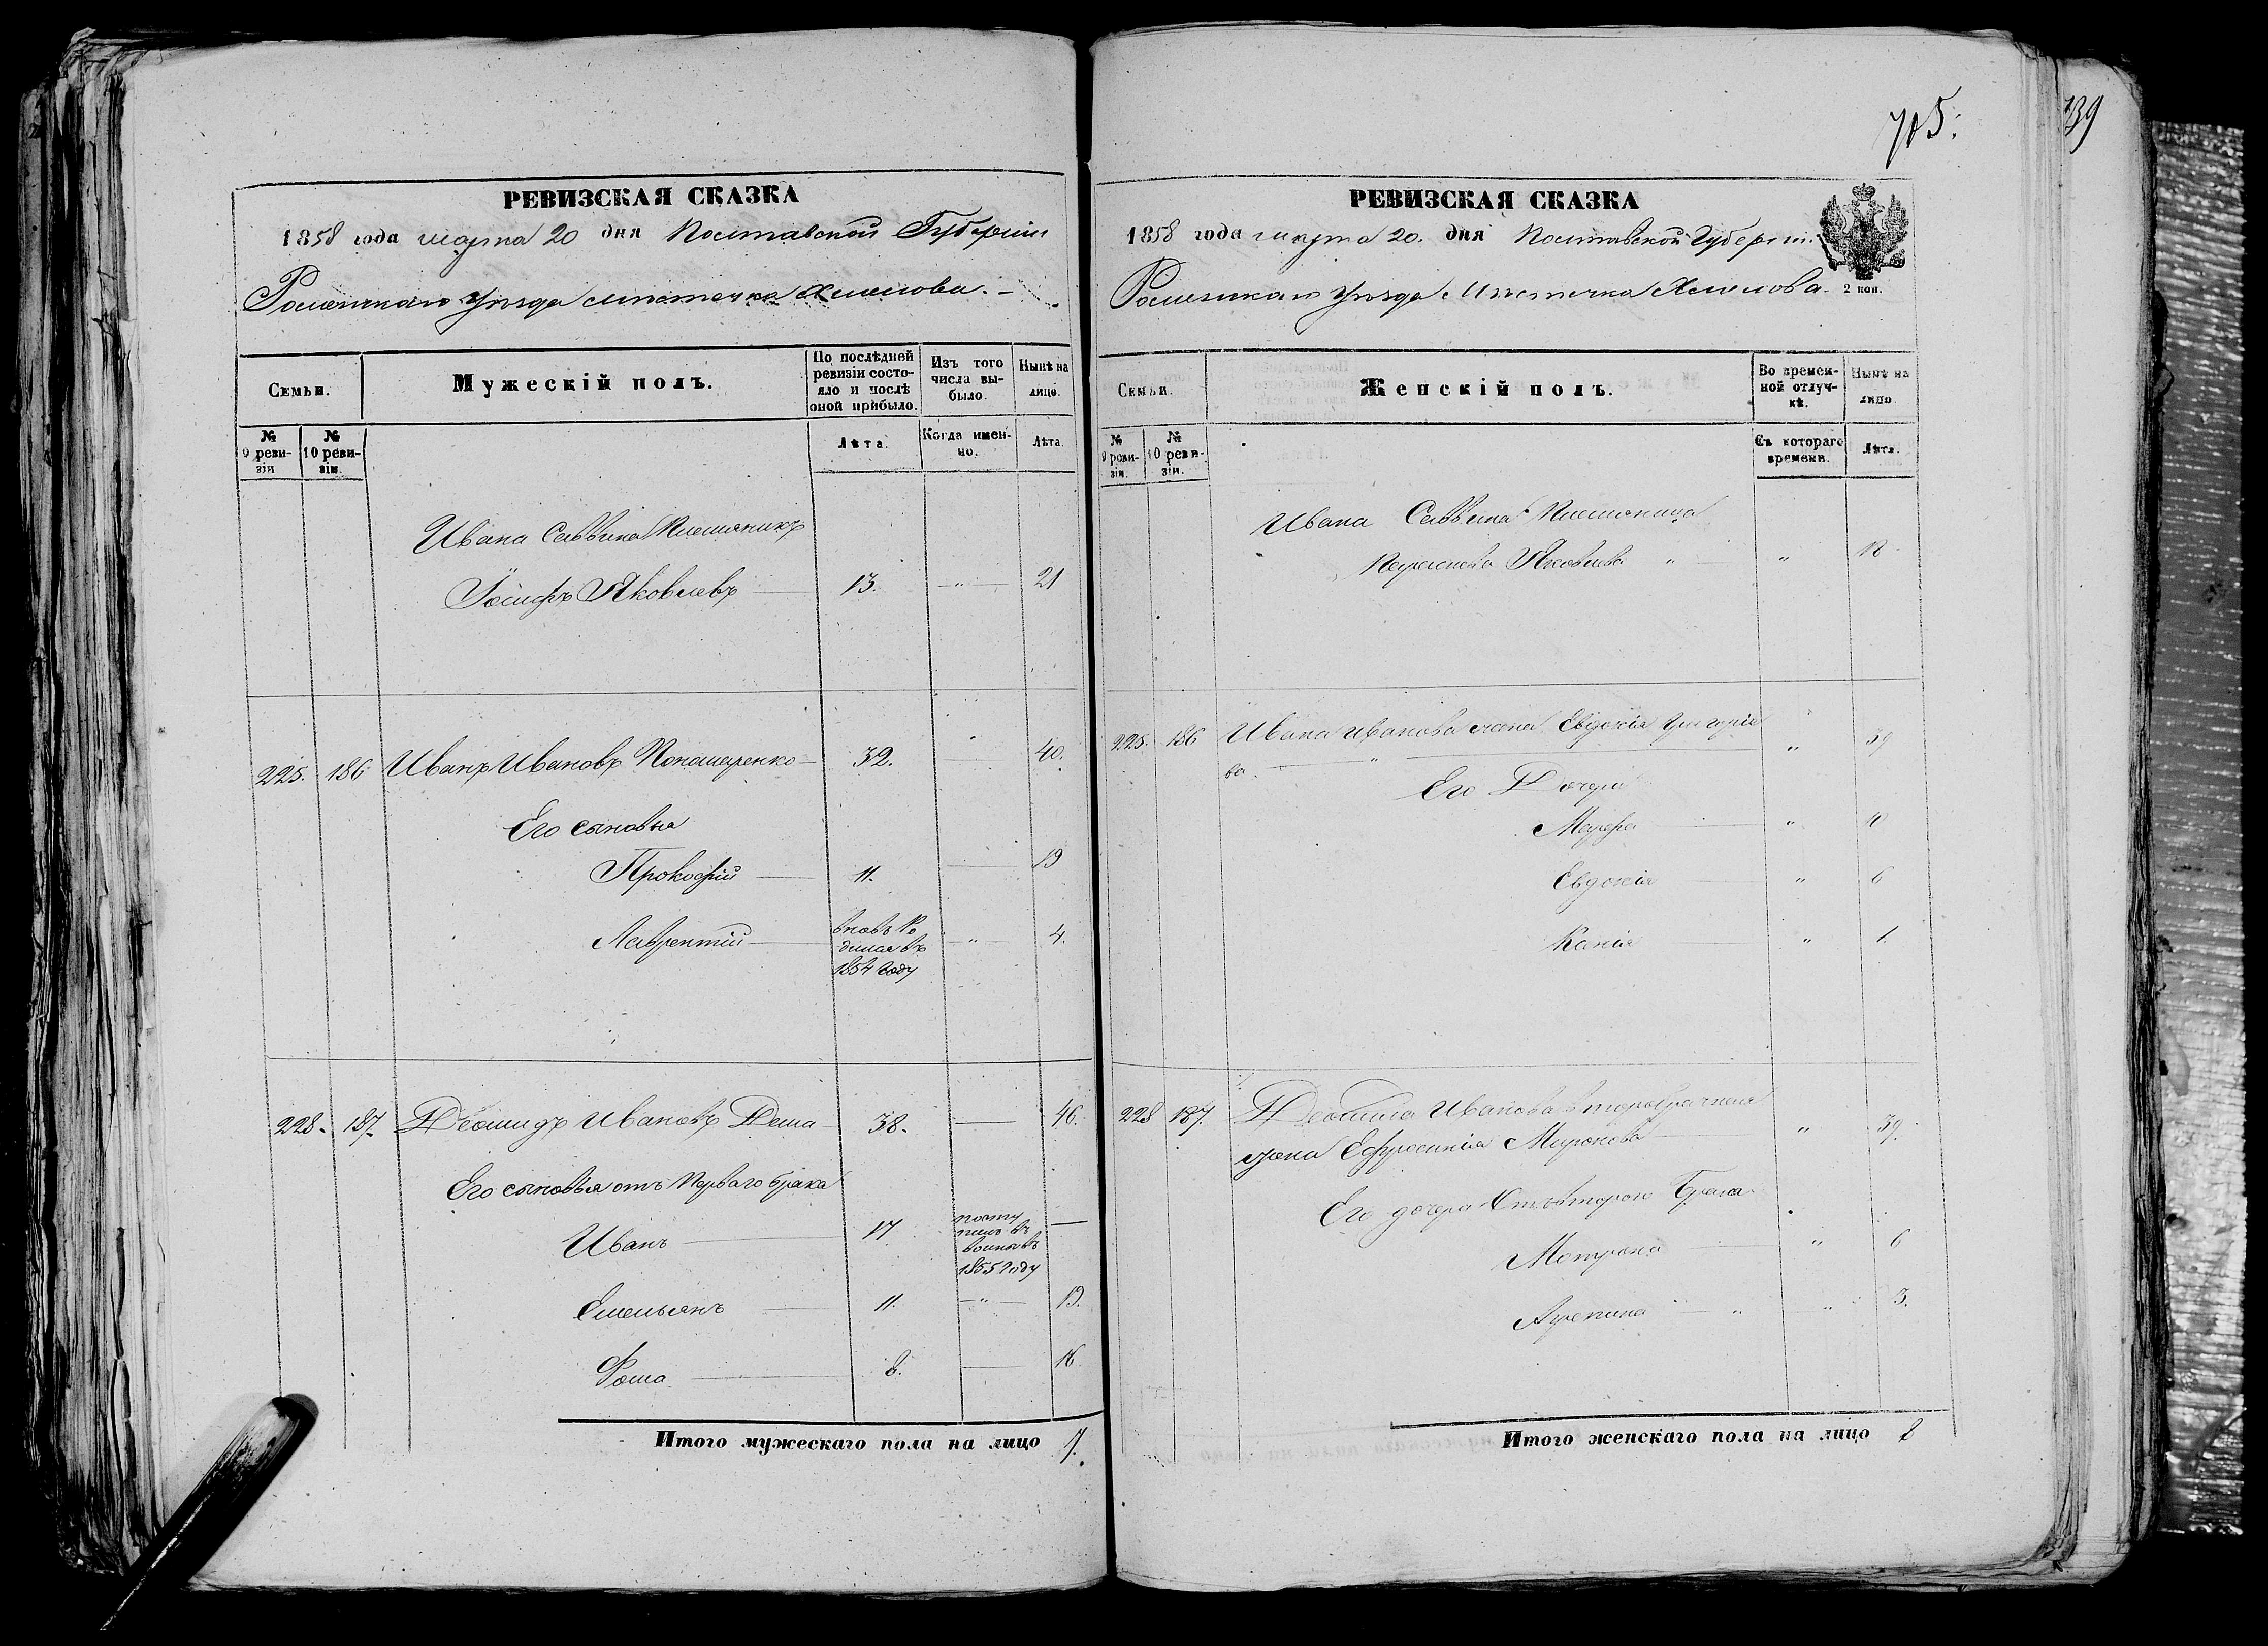 705.
739
РЕВИЗСКАЯ СКАЗКА
1858 года марта 20 дня Полтавской Губерніи
Роменскаго уѣзда мѣстечка Хмелова.
Семьи.
Мужескій полъ.
По послѣдней ревизіи состояло и послѣ оной прибыло.
Изъ того числа выбыло.
Нынѣ на лицо.
№ 9 ревизіи
№ 10 ревизіи.
Лѣта.
Когда именно.
Лѣта.
Ивана Саввина Племяникъ
Іосифъ Яковлевъ 13. " 21
225. 186 Иванъ Ивановъ Пономаренко 32. 40.
Его сыновья
Прокофій 11. 19
Лаврентій вновь Ро
дился въ
1854 году " 4.
228. 187. Деомидъ Ивановъ Дема 38. 46.
Его сыновья отъ Перваго брака
Иванъ 17 посту
пилъ въ
1855 году
Емельянъ 11. " 19.
Фома 8. 16
Итого мужескаго пола на лицо 7.
РЕВИЗСКАЯ СКАЗКА
1858 года марта 20. дня Полтавской Губерніи.
Роменскаго уѣзда Мѣстечка Хмелова.
2 коп.
Семьи.
Женскій полъ.
Во временной отлучкѣ.
Нынѣ на лицо
№ 9 ревизіи.
№ 10 ревизіи.
Съ котораго времени.
Лѣта.
Ивана Саввина Племяница
Яковлева " " 18
225. 186 Ивана Иванова жена Евдокія Григорie
ва. " " 39
Его Дочери
Марфа " 10
Евдокія " 6
" 1.
228 187. Деомида Иванова второбрачная
жена Ефросинія Миронова " 39.
Его дочери Отъ втораго Брака
Мотрона " 6
Агрепина " " 3.
Итого женскаго пола на лицо 8